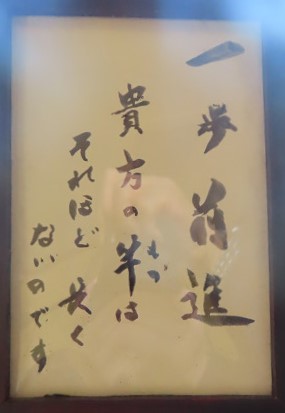 一歩前進
貴方の竿は
それほど長く
ないのです